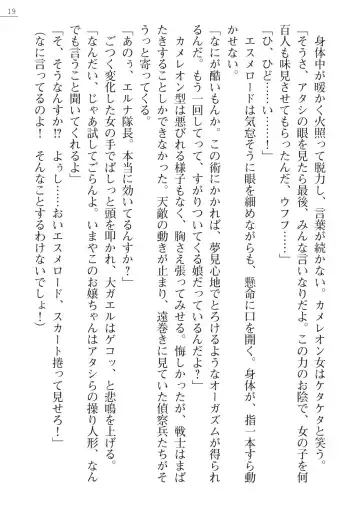 19
　身体中が暖かく火照って脱力し、言葉が続かない。カメレオン女はケタケタと笑う。
「そうさ、アタシの眼を見たら最後、みんな言いなりだよ。この力のお陰で、女の子を何
百人も味見させてもらったんだ、ウフフ……」
「ひ、ひど……い！」
　エスメロードは気怠そうに眼を細めながらも、懸命に口を開く。身体が、指一本すら動
かせない。
「なにが酷いもんか。この術にかかれば、夢見心地でとろけるようなオーガズムが得られ
るんだ。もう一回してって、すがりついてくる娘だっているんだよ？」
　カメレオン型は悪びれる様子もなく、胸さえ張ってみせる。悔しかったが、戦士はまば
たきすることしかできなかった。天敵の動きが止まり、遠巻きに見ていた偵察兵たちがそ
うっと寄ってくる。
「あのぅ、エルナ隊長。本当に効いてるんすか？」
　ごつく変化した女の手でばしっと頭を叩かれ、大ガエルはゲコッ、と悲鳴を上げる。
「なんだい、じゃあ試してごらんよ。いまやこのお嬢ちゃんはアタシらの操り人形、なん
でも言うこと聞いてくれるよ」
「そ、そうなんすか⁉　よぅし……おいエスメロード、スカート捲って見せろ！」
（なに言ってるのよ！　そんなことするわけないでしょ！）